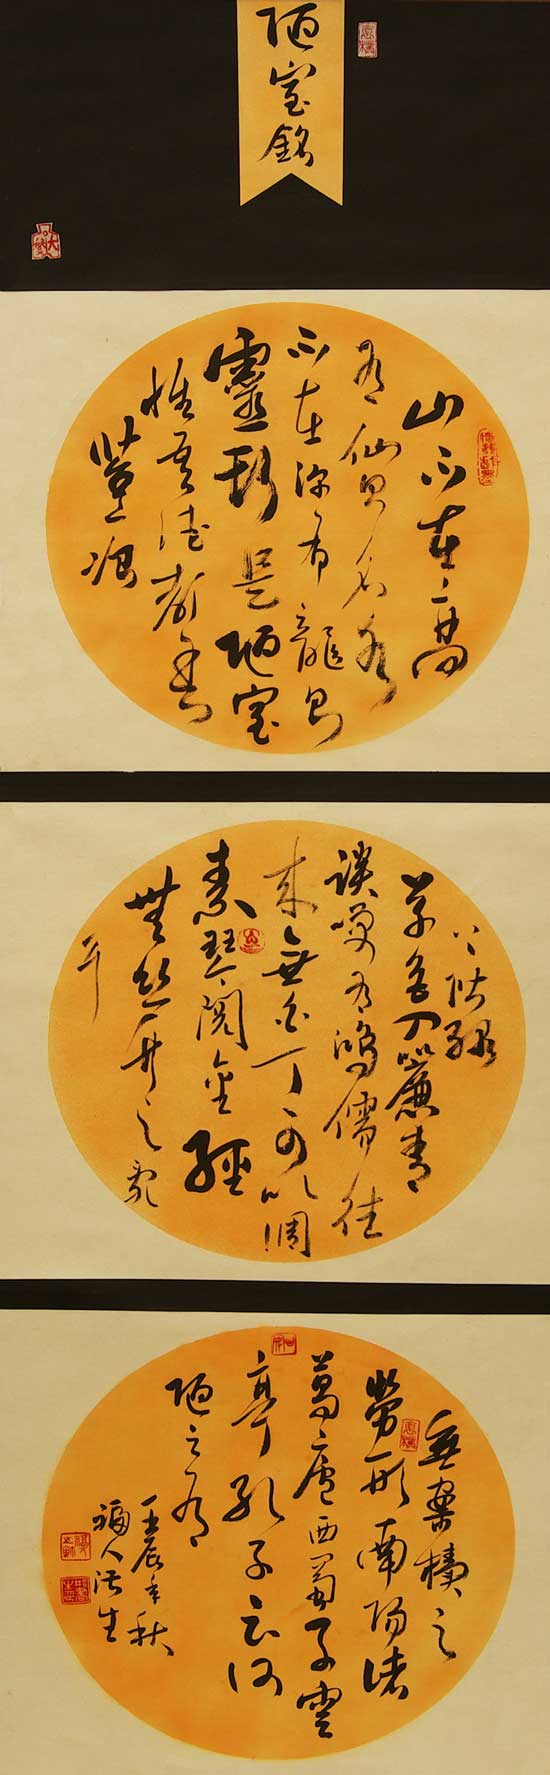 陋室銘
山不在高
有仙則名水
不在深有龍則
靈斯是陋室
惟吾德馨
苔痕
上階綠
草色入簾青
談笑有鴻儒往
來無白丁可以調
素琴閱金經
無絲竹之亂
耳
無案牘之
勞形南陽諸
葛廬西蜀子雲
亭孔子云何
陋之有
壬辰年秋
福人